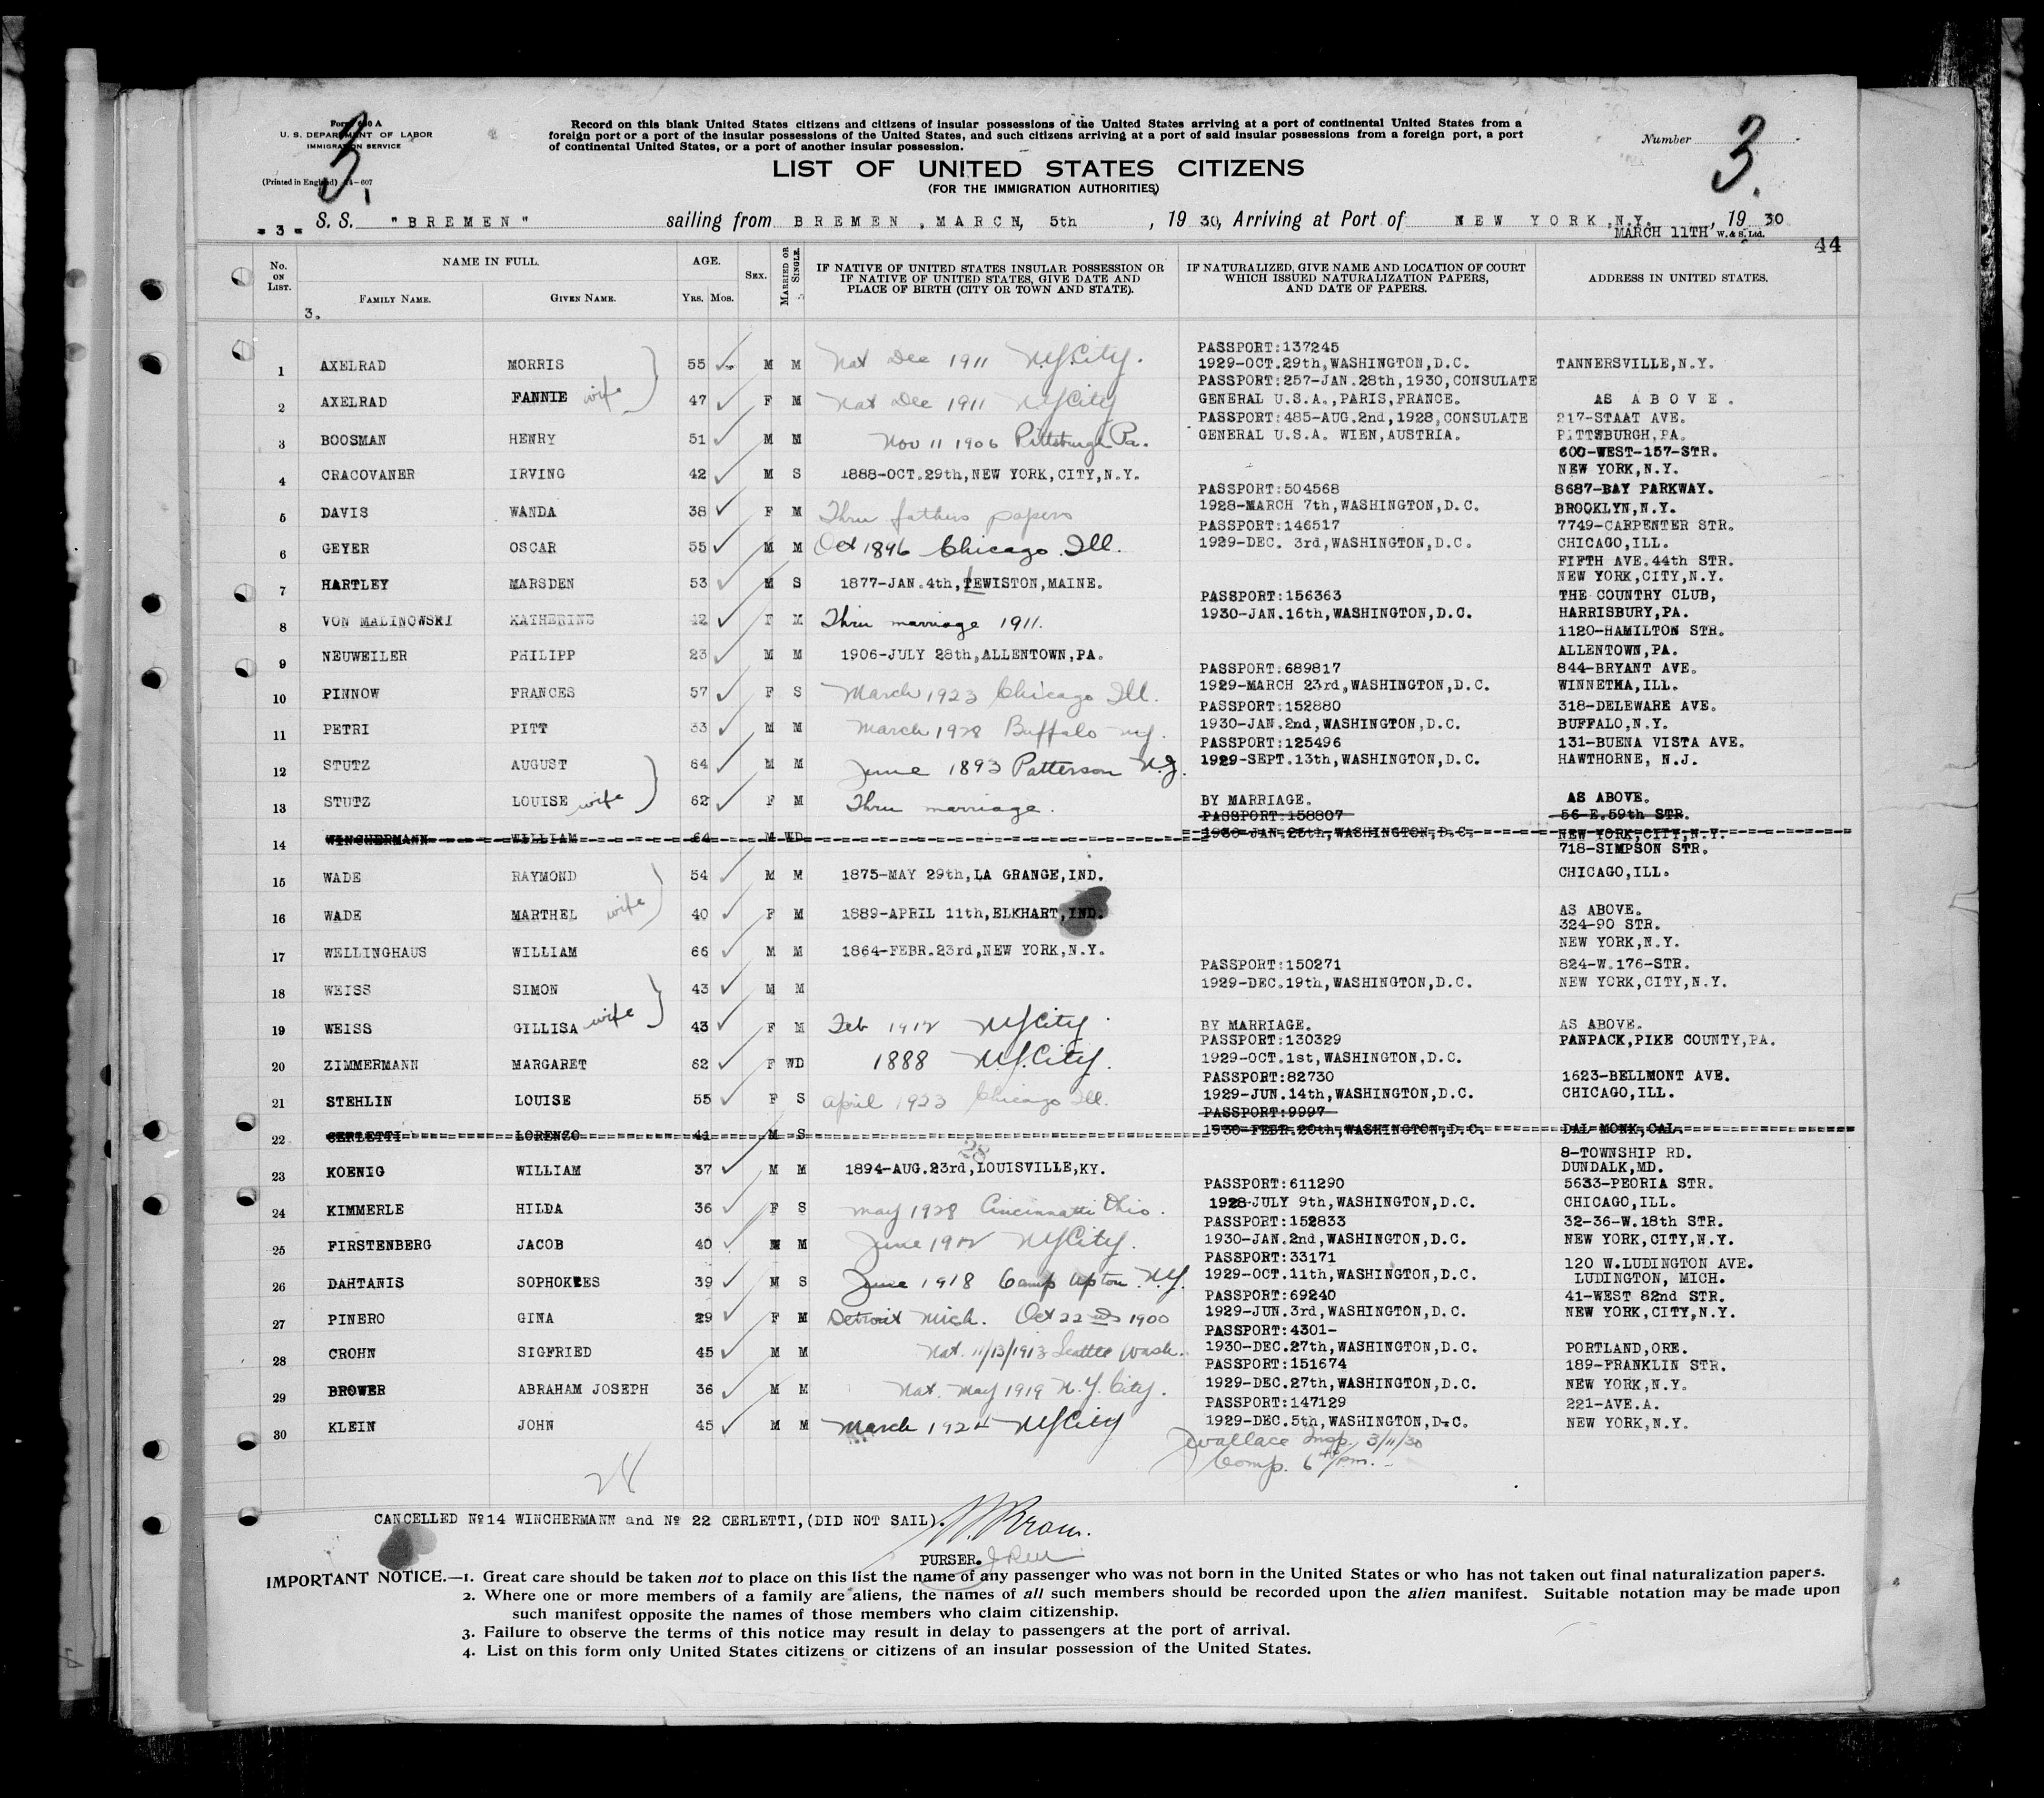 3.
Form 630 A
U. S. DEPARTMENT OF LABOR
IMMIGRATION SERVICE
(Printed in England) 14—607
Record on this blank United States citizens and citizens of insular possessions of the United States arriving at a port of continental United States from a
foreign port or a port of the insular possessions of the United States, and such citizens arriving at a port of said insular possessions from a foreign port, a port
of continental United States, or a port of another insular possession.
Number 3.
LIST OF UNITED STATES CITIZENS
(FOR THE IMMIGRATION AUTHORITIES)
- 3 - S. S. "BREMEN" sailing from BREMEN, MARCH, 5th, 1930, Arriving at Port of NEW YORK, N.Y. MARCH 11TH, 1930
W. & S. Ltd.
44
No. ON LIST. NAME IN FULL. AGE. SEX. MARRIED OR SINGLE. IF NATIVE OF UNITED STATES INSULAR POSSESSION OR IF NATIVE OF UNITED STATES, GIVE DATE AND PLACE OF BIRTH (CITY OR TOWN AND STATE). IF NATURALIZED, GIVE NAME AND LOCATION OF COURT WHICH ISSUED NATURALIZATION PAPERS, AND DATE OF PAPERS. ADDRESS IN UNITED STATES.
FAMILY NAME. GIVEN NAME. YRS. MOS.
3.
1 AXELRAD MORRIS 55 M M Nat Dec 1911 NYCity. PASSPORT:137245 1929-OCT.29th,WASHINGTON,D.C. TANNERSVILLE,N.Y.
2 AXELRAD FANNIE wife 47 F M Nat Dec 1911 NYCity PASSPORT:257-JAN.28th,1930,CONSULATE GENERAL U.S.A.,PARIS,FRANCE. AS ABOVE.
3 BOOSMAN HENRY 51 M M Nov 11 1906 Pittsburgh Pa. PASSPORT:485-AUG.2nd,1928,CONSULATE GENERAL U.S.A. WIEN,AUSTRIA. 217-STAAT AVE. PITTSBURGH,PA.
4 CRACOVANER IRVING 42 M S 1888-OCT.29th,NEW YORK,CITY,N.Y. 600-WEST-157-STR. NEW YORK,N.Y.
5 DAVIS WANDA 38 F M Thru fathers papers PASSPORT:504568 1928-MARCH 7th,WASHINGTON,D.C. 8687-BAY PARKWAY. BROOKLYN,N.Y.
6 GEYER OSCAR 55 M M Oct 1896 Chicago Ill. PASSPORT:146517 1929-DEC. 3rd,WASHINGTON,D.C. 7749-CARPENTER STR. CHICAGO,ILL.
7 HARTLEY MARSDEN 53 M S 1877-JAN.4th,LEWISTON,MAINE. FIFTH AVE.44th STR. NEW YORK,CITY,N.Y.
8 VON MALINOWSKI KATHERINE 42 F M Thru marriage 1911. PASSPORT:156363 1930-JAN.16th,WASHINGTON,D.C. THE COUNTRY CLUB, HARRISBURY,PA.
9 NEUWEILER PHILIPP 23 M M 1906-JULY 28th,ALLENTOWN,PA. 1120-HAMILTON STR. ALLENTOWN,PA.
10 PINNOW FRANCES 57 F S March 1923 Chicago Ill. PASSPORT:689817 1929-MARCH 23rd,WASHINGTON,D.C. 844-BRYANT AVE. WINNETKA,ILL.
11 PETRI PITT 33 M M March 1928 Buffalo NY. PASSPORT:152880 1930-JAN.2nd,WASHINGTON,D.C. 318-DELEWARE AVE. BUFFALO,N.Y.
12 STUTZ AUGUST 64 M M June 1893 Patterson N.J. PASSPORT:125496 1929-SEPT.13th,WASHINGTON,D.C. 131-BUENA VISTA AVE. HAWTHORNE, N.J.
13 STUTZ LOUISE wife 62 F M Thru marriage. BY MARRIAGE. AS ABOVE.
14 WINCHERMANN WILLIAM 64 M WD PASSPORT:158807 1930-JAN.25th,WASHINGTON,D.C. 56 E.59th STR. NEW YORK,CITY,N.Y.
15 WADE RAYMOND 54 M M 1875-MAY 29th,LA GRANGE,IND. 718-SIMPSON STR. CHICAGO,ILL.
16 WADE MARTHEL wife 40 F M 1889-APRIL 11th,ELKHART,IND. AS ABOVE.
17 WELLINGHAUS WILLIAM 66 M M 1864-FEBR.23rd,NEW YORK,N.Y. 324-90 STR. NEW YORK,N.Y.
18 WEISS SIMON 43 M M PASSPORT:150271 1929-DEC.19th,WASHINGTON,D.C. 824-W.176-STR. NEW YORK,CITY,N.Y.
19 WEISS GILLISA wife 43 F M Feb 1912 NYCity BY MARRIAGE. AS ABOVE.
20 ZIMMERMANN MARGARET 62 F WD 1888 N.Y.City. PASSPORT:130329 1929-OCT.1st,WASHINGTON,D.C. PANPACK,PIKE COUNTY,PA.
21 STEHLIN LOUISE 55 F S April 1923 Chicago Ill. PASSPORT:82730 1929-JUN.14th,WASHINGTON,D.C. 1623-BELLMONT AVE. CHICAGO,ILL.
22 CERLETTI LORENZO 41 M S PASSPORT:9997 1930-FEBR.20th,WASHINGTON,D.C. DAL MONK,CAL.
28
23 KOENIG WILLIAM 37 M M 1894-AUG.23rd,LOUISVILLE,KY. 8-TOWNSHIP RD. DUNDALK,MD.
24 KIMMERLE HILDA 36 F S May 1928 Cincinnatti Ohio. PASSPORT:611290 1928-JULY 9th,WASHINGTON,D.C. 5633-PEORIA STR. CHICAGO,ILL.
25 FIRSTENBERG JACOB 40 M M June 1912 NYCity. PASSPORT:152833 1930-JAN.2nd,WASHINGTON,D.C. 32-36-W.18th STR. NEW YORK,CITY,N.Y.
26 DAHTANIS SOPHOKLES 39 M S June 1918 Camp Upton N.Y. PASSPORT:33171 1929-OCT.11th,WASHINGTON,D.C. 120 W.LUDINGTON AVE. LUDINGTON, MICH.
27 PINERO GINA 29 F M Detroit Mich. Oct 22nd 1900 PASSPORT:69240 1929-JUN.3rd,WASHINGTON,D.C. 41-WEST 82nd STR. NEW YORK,CITY,N.Y.
28 CROHN SIGFRIED 45 M M Nat. 11/13/1913 Seattle Wash. PASSPORT:4301- 1930-DEC.27th,WASHINGTON,D.C. PORTLAND,ORE.
29 BROWER ABRAHAM JOSEPH 36 M M Nat. May 1919 N.Y. City. PASSPORT:151674 1929-DEC.27th,WASHINGTON,D.C. 189-FRANKLIN STR. NEW YORK,N.Y.
30 KLEIN JOHN 45 M M March 1924 NYCity PASSPORT:147129 1929-DEC.5th,WASHINGTON,D.C. 221-AVE.A. NEW YORK,N.Y.
Wallace Insp. 3/11/30
Comp. 6 40/pm.
24
CANCELLED Nº14 WINCHERMANN and Nº 22 CERLETTI,(DID NOT SAIL).
PURSER.
IMPORTANT NOTICE.—1. Great care should be taken not to place on this list the name of any passenger who was not born in the United States or who has not taken out final naturalization papers.
2. Where one or more members of a family are aliens, the names of all such members should be recorded upon the alien manifest. Suitable notation may be made upon
such manifest opposite the names of those members who claim citizenship.
3. Failure to observe the terms of this notice may result in delay to passengers at the port of arrival.
4. List on this form only United States citizens or citizens of an insular possession of the United States.